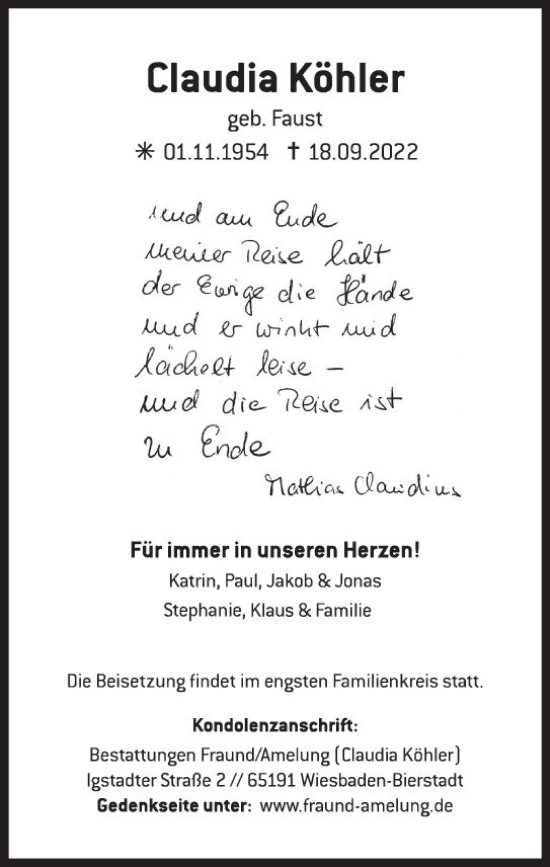 Claudia Köhler
geb. Faust
✳ 01.11.1954 ✝ 18.09.2022
und am Ende
meiner Reise hält
der Ewige die Hände
und er winkt und
lächelt leise –
und die Reise ist
zu Ende
Mathias Claudius
Für immer in unseren Herzen!
Katrin, Paul, Jakob & Jonas
Stephanie, Klaus & Familie
Die Beisetzung findet im engsten Familienkreis statt.
Kondolenzanschrift:
Bestattungen Fraund/Amelung (Claudia Köhler)
Igstadter Straße 2 // 65191 Wiesbaden-Bierstadt
Gedenkseite unter: www.fraund-amelung.de